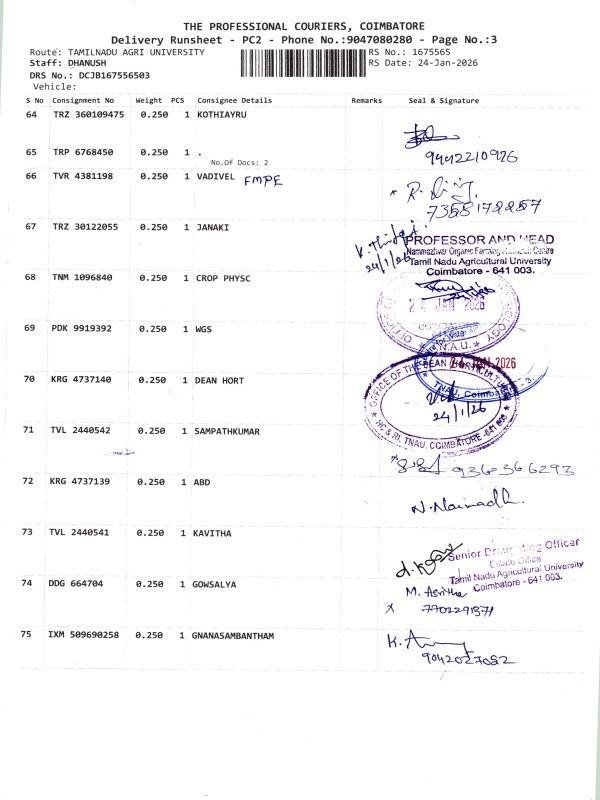 THE PROFESSIONAL COURIERS, COIMBATORE
Delivery Runsheet - PC2 - Phone No.:9047080280 - Page No.:3
Route: TAMILNADU AGRI UNIVERSITY
RS No.: 1675565
Staff: DHANUSH
RS Date: 24-Jan-2026
DRS No.: DCJB167556503
Vehicle:
S No Consignment No Weight PCS Consignee Details Remarks Seal & Signature
64 TRZ 360109475 0.250 1 KOTHIAYRU
65 TRP 6768450 0.250 1 .
9442210926
No.Of Docs: 2
66 TVR 4381198 0.250 1 VADIVEL FMPE
7358172857
67 TRZ 30122055 0.250 1 JANAKI
24/1/26
PROFESSOR AND HEAD
Nammazhvar Organic Farming Research Centre
Tamil Nadu Agricultural University
Coimbatore - 641 003.
68 TNM 1096840 0.250 1 CROP PHYSC
24 JAN 2026
69 PDK 9919392 0.250 1 WGS
T.N.A.U.
JAN 2026
70 KRG 4737140 0.250 1 DEAN HORT
OFFICE OF THE DEAN HORTICULTURE
TNAU, Coimbatore - 3.
24/1/26
HC & RI, TNAU, COIMBATORE - 641 003
71 TVL 2440542 0.250 1 SAMPATHKUMAR
9363366293
72 KRG 4737139 0.250 1 ABD
N. Nainadh.
73 TVL 2440541 0.250 1 KAVITHA
Senior Officer
Estate Office
Tamil Nadu Agricultural University
Coimbatore - 641 003.
74 DDG 664704 0.250 1 GOWSALYA
M. Asvitha
x 7702291371
75 IXM 509690258 0.250 1 GNANASAMBANTHAM
9042027052